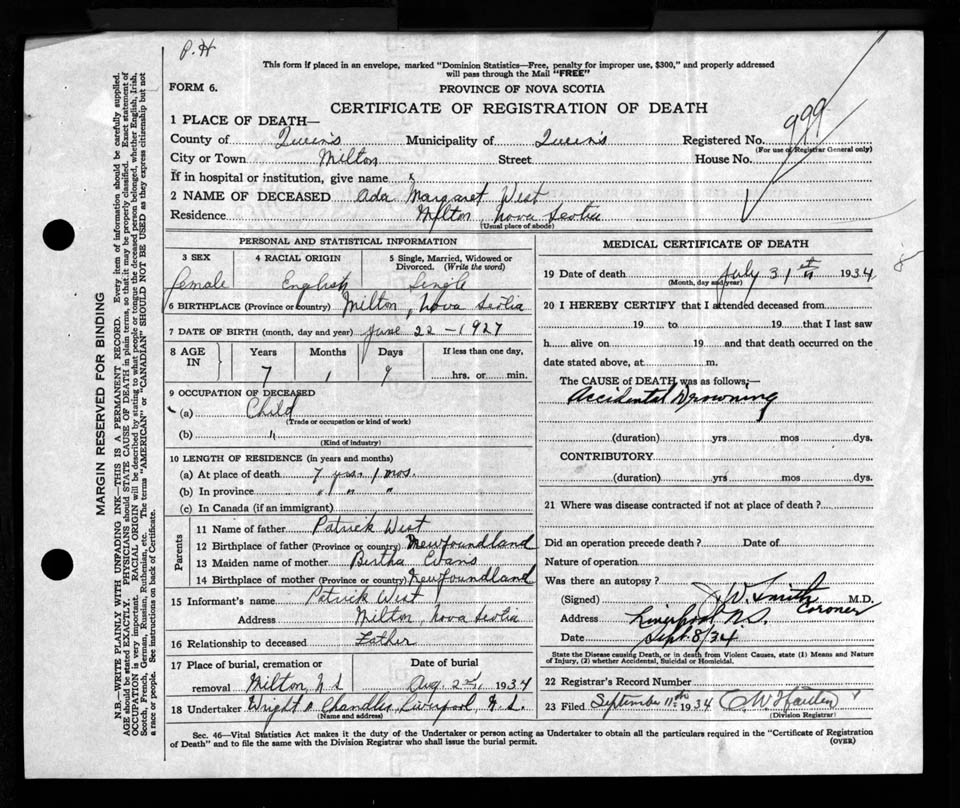 P.H
This form if placed in an envelope, marked "Dominion Statistics—Free, penalty for improper use, $300," and properly addressed
will pass through the Mail "FREE"
FORM 6.
PROVINCE OF NOVA SCOTIA
CERTIFICATE OF REGISTRATION OF DEATH
1 PLACE OF DEATH—
County of Queens Municipality of Queens Registered No. 999
(For use of Registrar General only)
City or Town Milton Street House No.
If in hospital or institution, give name x
2 NAME OF DECEASED Ada Margaret West
Residence Milton, Nova Scotia
(Usual place of abode)
PERSONAL AND STATISTICAL INFORMATION
3 SEX
female
4 RACIAL ORIGIN
English
5 Single, Married, Widowed or
Divorced. (Write the word)
Single
6 BIRTHPLACE (Province or country) Milton, Nova Scotia
7 DATE OF BIRTH (month, day and year) June 22 - 1927
8 AGE
IN
Years Months Days If less than one day,
7 1 9 hrs. or min.
9 OCCUPATION OF DECEASED
(a) Child
(Trade or occupation or kind of work)
(b) "
(Kind of industry)
10 LENGTH OF RESIDENCE (in years and months)
(a) At place of death 7 yrs. 1 mos.
(b) In province " " "
(c) In Canada (if an immigrant)
Parents
11 Name of father Patrick West
12 Birthplace of father (Province or country) Newfoundland
13 Maiden name of mother Bertha Evans
14 Birthplace of mother (Province or country) Newfoundland
15 Informant's name Patrick West
Address Milton, Nova Scotia
16 Relationship to deceased Father
17 Place of burial, cremation or Date of burial
removal Milton, N.S Aug. 2nd, 1934
18 Undertaker Wright A. Chandler, Liverpool, N.S.
(Name and address)
MEDICAL CERTIFICATE OF DEATH
19 Date of death July 31st 1934
(Month, day and year)
8
20 I HEREBY CERTIFY that I attended deceased from
19 to 19 that I last saw
h alive on 19 and that death occurred on the
date stated above, at m.
The CAUSE of DEATH was as follows;—
Accidental Drowning
(duration) yrs mos dys.
CONTRIBUTORY
(duration) yrs mos dys.
21 Where was disease contracted if not at place of death?
Did an operation precede death? Date of
Nature of operation
Was there an autopsy?
(Signed) J W. Smith M.D.
Coroner
Address Liverpool, N.S.
Date Sept. 8/34
State the Disease causing Death, or in death from Violent Causes, state (1) Means and Nature
of Injury, (2) whether Accidental, Suicidal or Homicidal.
22 Registrar's Record Number
23 Filed September 11th 1934
(Division Registrar)
Sec. 46—Vital Statistics Act makes it the duty of the Undertaker or person acting as Undertaker to obtain all the particulars required in the "Certificate of Registration
of Death" and to file the same with the Division Registrar who shall issue the burial permit.
(OVER)
MARGIN RESERVED FOR BINDING
N.B.—WRITE PLAINLY WITH UNFADING INK—THIS IS A PERMANENT RECORD. Every item of information should be carefully supplied.
AGE should be stated EXACTLY. PHYSICIANS should STATE CAUSE OF DEATH in plain terms, so that it may be properly classified. Exact statement of
OCCUPATION is very important. RACIAL ORIGIN will be described by stating to what people or tongue the deceased person belonged, whether English, Irish,
Scotch, French, German, Russian, Ruthenian, etc. The terms "AMERICAN" or "CANADIAN" SHOULD NOT BE USED as they express citizenship but not
a race or people. See instructions on back of Certificate.